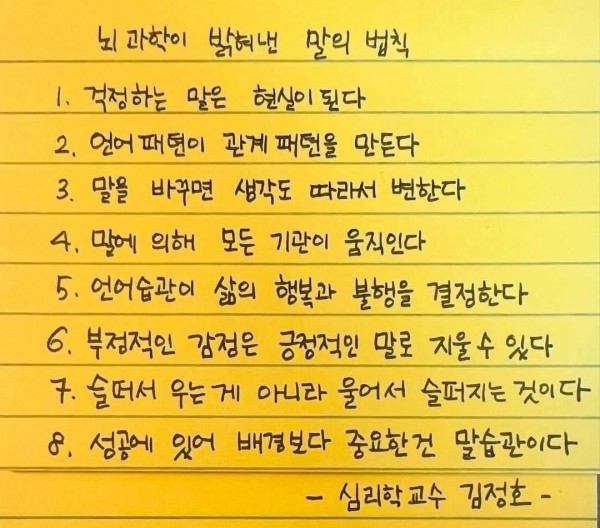 뇌 과학이 밝혀낸 말의 법칙
1. 걱정하는 말은 현실이 된다
2. 언어패턴이 관계패턴을 만든다
3. 말을 바꾸면 생각도 따라서 변한다
4. 말에 의해 모든 기관이 움직인다
5. 언어습관이 삶의 행복과 불행을 결정한다
6. 부정적인 감정은 긍정적인 말로 지울 수 있다
7. 슬퍼서 우는 게 아니라 울어서 슬퍼지는 것이다
8. 성공에 있어 배경보다 중요한건 말습관이다
- 심리학교수 김정호 -